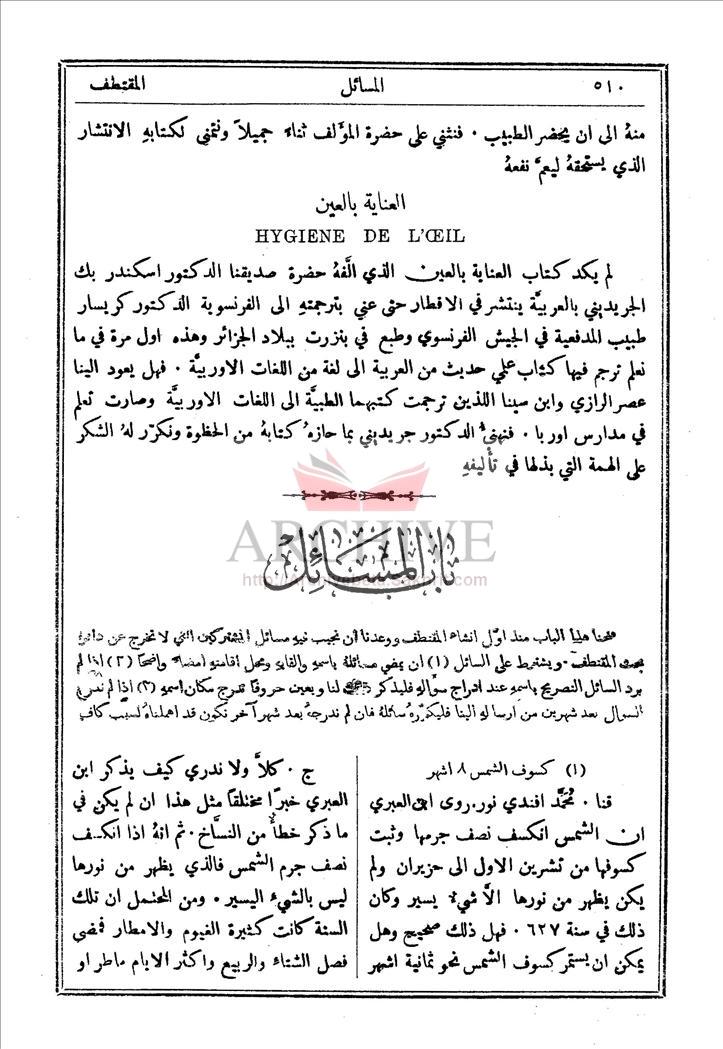 ٥١٠
المسائل
المقتطف
منهُ الى ان يحضر الطبيب ٠ فنثني على حضرة المؤلف ثناء جميلاً ونتمنى لكتابهِ الانتشار
الذي يستحقهُ ليعمَّ نفعهُ
العناية بالعين
HYGIENE DE L'ŒIL
لم يكد كتاب العناية بالعين الذي الَّفهُ حضرة صديقنا الدكتور اسكندر بك
الجريديني بالعربيَّة ينتشر في الاقطار حتى عني بترجمتهِ الى الفرنسوية الدكتور كريسار
طبيب المدفعية في الجيش الفرنسوي وطبع في بنزرت ببلاد الجزائر وهذه اول مرة في ما
نعلم ترجم فيها كتاب علمي حديث من العربية الى لغة من اللغات الاوربيَّة ٠ فهل يعود الينا
عصر الرازي وابن سينا اللذين ترجمت كتبهما الطبيَّة الى اللغات الاوربيَّة وصارت تعلم
في مدارس اوربا ٠ فنهنئُ الدكتور جريديني بما حازهُ كتابهُ من الحظوة ونكرّر لهُ الشكر
على الهمة التي بذلها في تأليفهِ
ARCHIVE
باب المسائل
فتحنا هذا الباب منذ اوّل انشاء المقتطف ووعدنا ان نجيب فيهِ مسائل المشتركين التي لا تخرج عن دائرة
بحث المقتطف ٠ ويشترط على السائل (١) ان يمضي مسائلهُ باسمهِ والقابهِ ومحل اقامتهِ امضاءً واضحاً (٢) اذا لم
يرد السائل التصريح باسمهِ عند ادراج سؤاله فليذكر ذلك لنا ويعين حروفاً تدرج مكان اسمهِ (٣) اذا لم ندرج
السوال بعد شهرين من ارساله الينا فليكرّرهُ سائلهُ فان لم ندرجهُ بعد شهر آخر نكون قد اهملناهُ لسبب كافٍ
(١) كسوف الشمس ٨ اشهر
قنا ٠ محمَّد افندي نور. روى ابن العبري
ان الشمس انكسف نصف جرمها وثبت
كسوفها من تشرين الاول الى حزيران ولم
يكن يظهر من نورها الاَّ شيءٌ يسير وكان
ذلك في سنة ٦٢٧ ٠ فهل ذلك صحيح وهل
يمكن ان يستمر كسوف الشمس نحو ثمانية اشهر
ج ٠ كلاَّ ولا ندري كيف يذكر ابن
العبري خبرًا مختلقاً مثل هذا ان لم يكن في
ما ذكر خطأٌ من النسَّاخ ٠ ثم انهُ اذا انكسف
نصف جرم الشمس فالذي يظهر من نورها
ليس بالشيء اليسير ٠ ومن المحتمل ان تلك
السنة كانت كثيرة الغيوم والامطار فمضى
فصل الشتاء والربيع واكثر الايام ماطر او